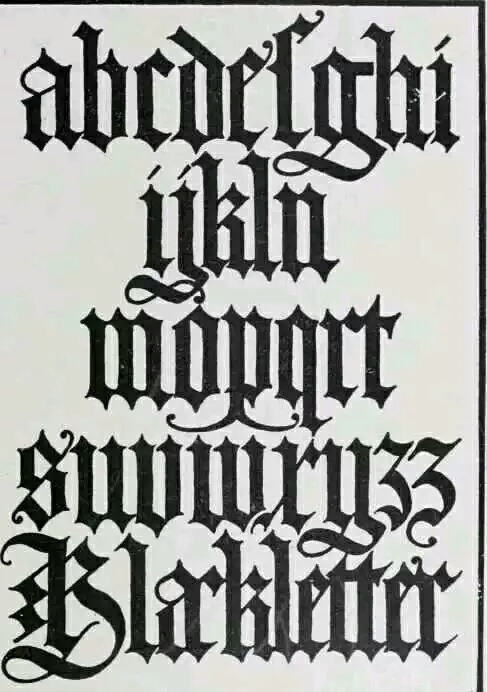 abcdefghi
ijkln
mopqrt
suvwxyzz
Blackletter